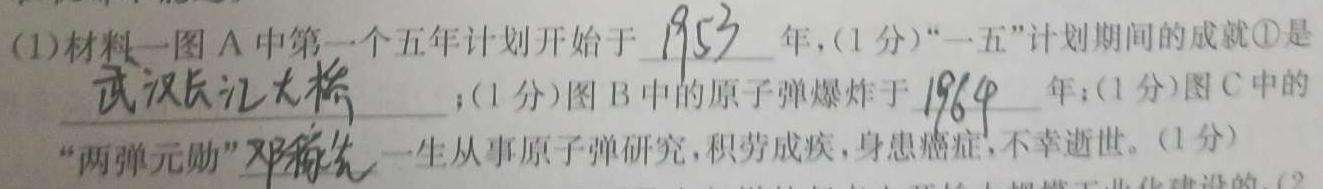 (1)材料一图 A 中第一个五年计划开始于 1953 年,(1 分)“一五”计划期间的成就①是
武汉长江大桥 ;(1 分)图 B 中的原子弹爆炸于 1964 年;(1 分)图 C 中的
“两弹元勋”邓稼先一生从事原子弹研究,积劳成疾,身患癌症,不幸逝世。(1 分)